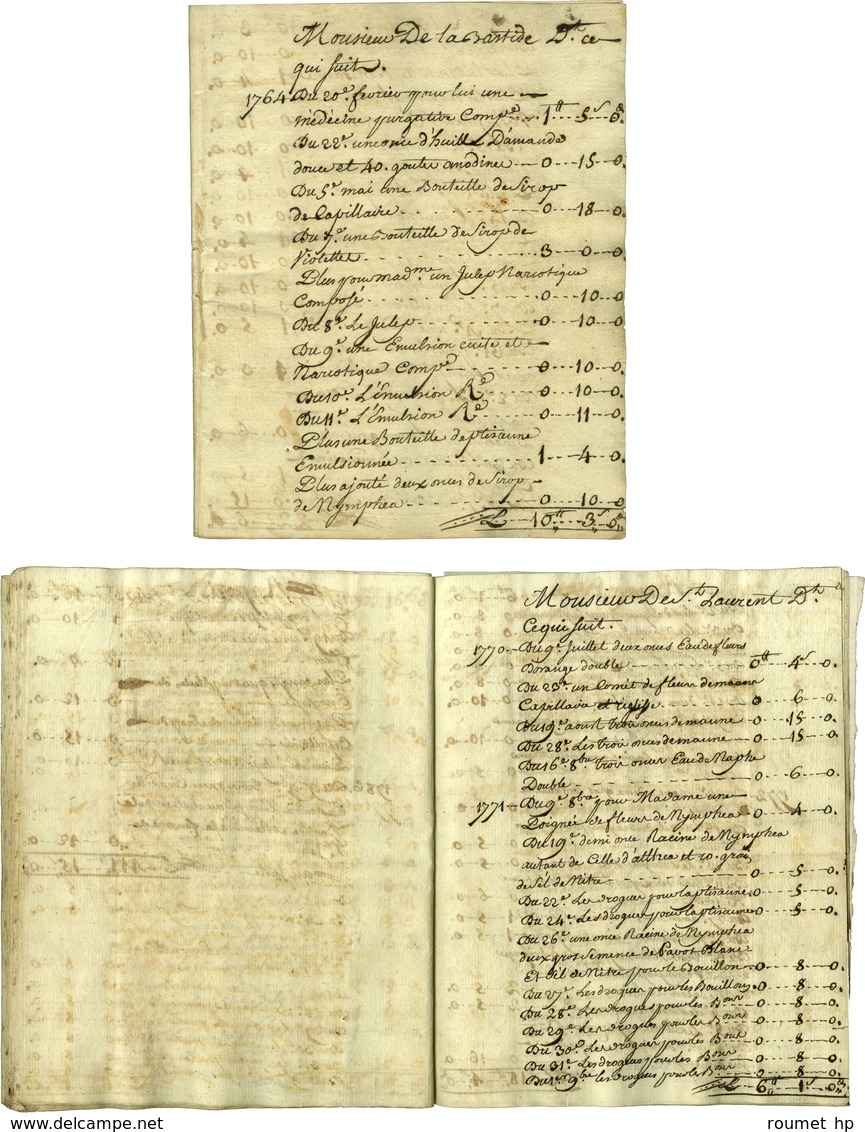 Monsieur De la Bastide D.t ce
qui suit.
1764 Du 20e. fevrier pour lui une
médécine purgative Comp.ée 1tt 5s 0d.
Du 22e. une once d'huille D'amande
douce et 40. goutes anodine 0 15 0.
Du 5e. mai une Bouteille de Sirop
de Capillaire 0 18 0.
Du 7e. une Bouteille de Sirop de
Violettes 3 0 0.
Plus pour mad.me un Julep Narcotique
Composé 0 10 0.
Du 8e. Le Julep 0 10 0.
Du 9e. une Emulsion cuite et
Narcotique Comp.ée 0 10 0.
Du 10e. L'Emulsion R.e 0 10 0.
Du 11e. L'Emulsion R.e 0 11 0.
Plus une Bouteille de ptisanne
Emulsionnée 1 4 0.
Plus ajouté deux onces de Sirop
de Nymphea 0 10 0
L 10tt 3s 0d
Monsieur De S.t Laurent D.t
Ce qui suit.
1770 Du 9e. Juillet deux onces Eau de fleurs
Dorange double 0tt 4s 0.
Du 23e. un Cornet de fleurs de mauve
Capillaire et 0 6 0.
Du 19e. aoust trois onces de manne 0 15 0.
Du 28e. Les trois onces de manne 0 15 0.
Du 16e. 8bre. trois onces Eau de Naphe
Double 0 6 0.
1771 Du 9e. 8bre. pour Madame une
Poignée de fleurs de Nymphea 0 4 0.
Du 19e. demi once Racine de Nymphea
autant de Celle d'althea et 10. grains
de Sel de Nitre 0 5 0.
Du 22e. Les drogues pour la ptisanne 0 5 0.
Du 24e. Les drogues pour la ptisanne 0 5 0.
Du 26e. une once Racine de Nymphea
deux gros Semence de Pavot Blanc
Et Sel de Nitre pour le Bouillon 0 8 0.
Du 27e. Les drogues pour les Bouillons 0 8 0.
Du 28e. Les drogues pour les Bouil 0 8 0.
Du 29e. Les drogues pour les Bouil 0 8 0.
Du 30e. Les drogues pour les Bouil 0 8 0.
Du 31e. Les drogues pour les Bouil 0 8 0.
Du 1er. 9bre les drogues pour les Bouil 0 8 0.
L 6tt 1s 0d
roumet hp